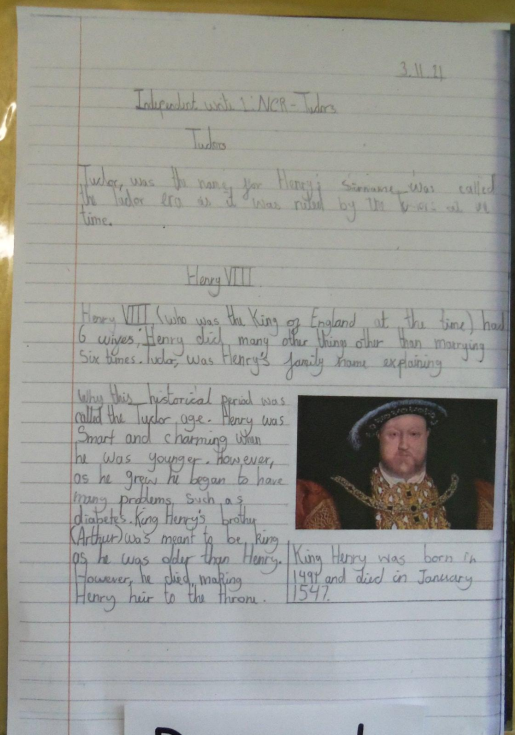 3.11.21
Independent write 1: NCR - Tudors
Tudors
Tudor, was the name for Henry's surname, was called
the Tudor era as it was ruled by the at the
time.
Henry VIII
Henry VIII (who was the King of England at the time) had
6 wives, Henry did many other things other than marrying
Six times. Tudor, was Henry's family name explaining
Why this historical period was
called the Tudor age. Henry was
Smart and charming when
he was younger. However,
as he grew he began to have
many problems such as
diabetes. King Henry's brother
(Arthur) was meant to be king
as he was older than Henry.
However, he died, making
Henry heir to the throne.
King Henry was born in
1491 and died in January
1547.